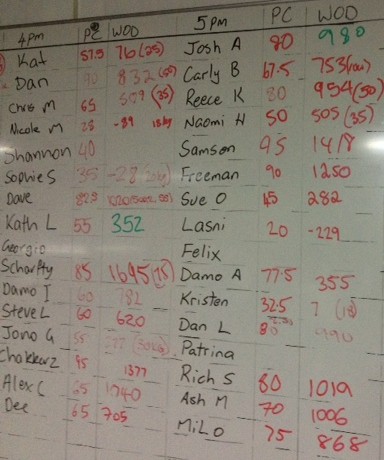 4pm PC WOD
Kat 57.5 76 (25)
Dan 90 832
Chris M 65 509 (35)
Nicole M 25 -89
Shannon 40
Sophie S 35 -28
Dave 82.5
Kath L 55 352
Georgio
Scharfty 85 1695
Damo I 60 782
Steve L 60 620
Jono G 55
Chokkerz 95 1377
Alex C 65 1740
Dee 65 705
5pm PC WOD
Josh A 80 980
Carly B 67.5 753
Reece K 80 954 (50)
Naomi H 50 505 (35)
Samson 95 1418
Freeman 90 1250
Sue O 45 282
Lasni 20 -229
Felix
Damo A 77.5 355
Kristen 32.5 7
Dan L 80 990
Patrina
Rich S 80 1019
Ash M 70 1006
Milo 75 868